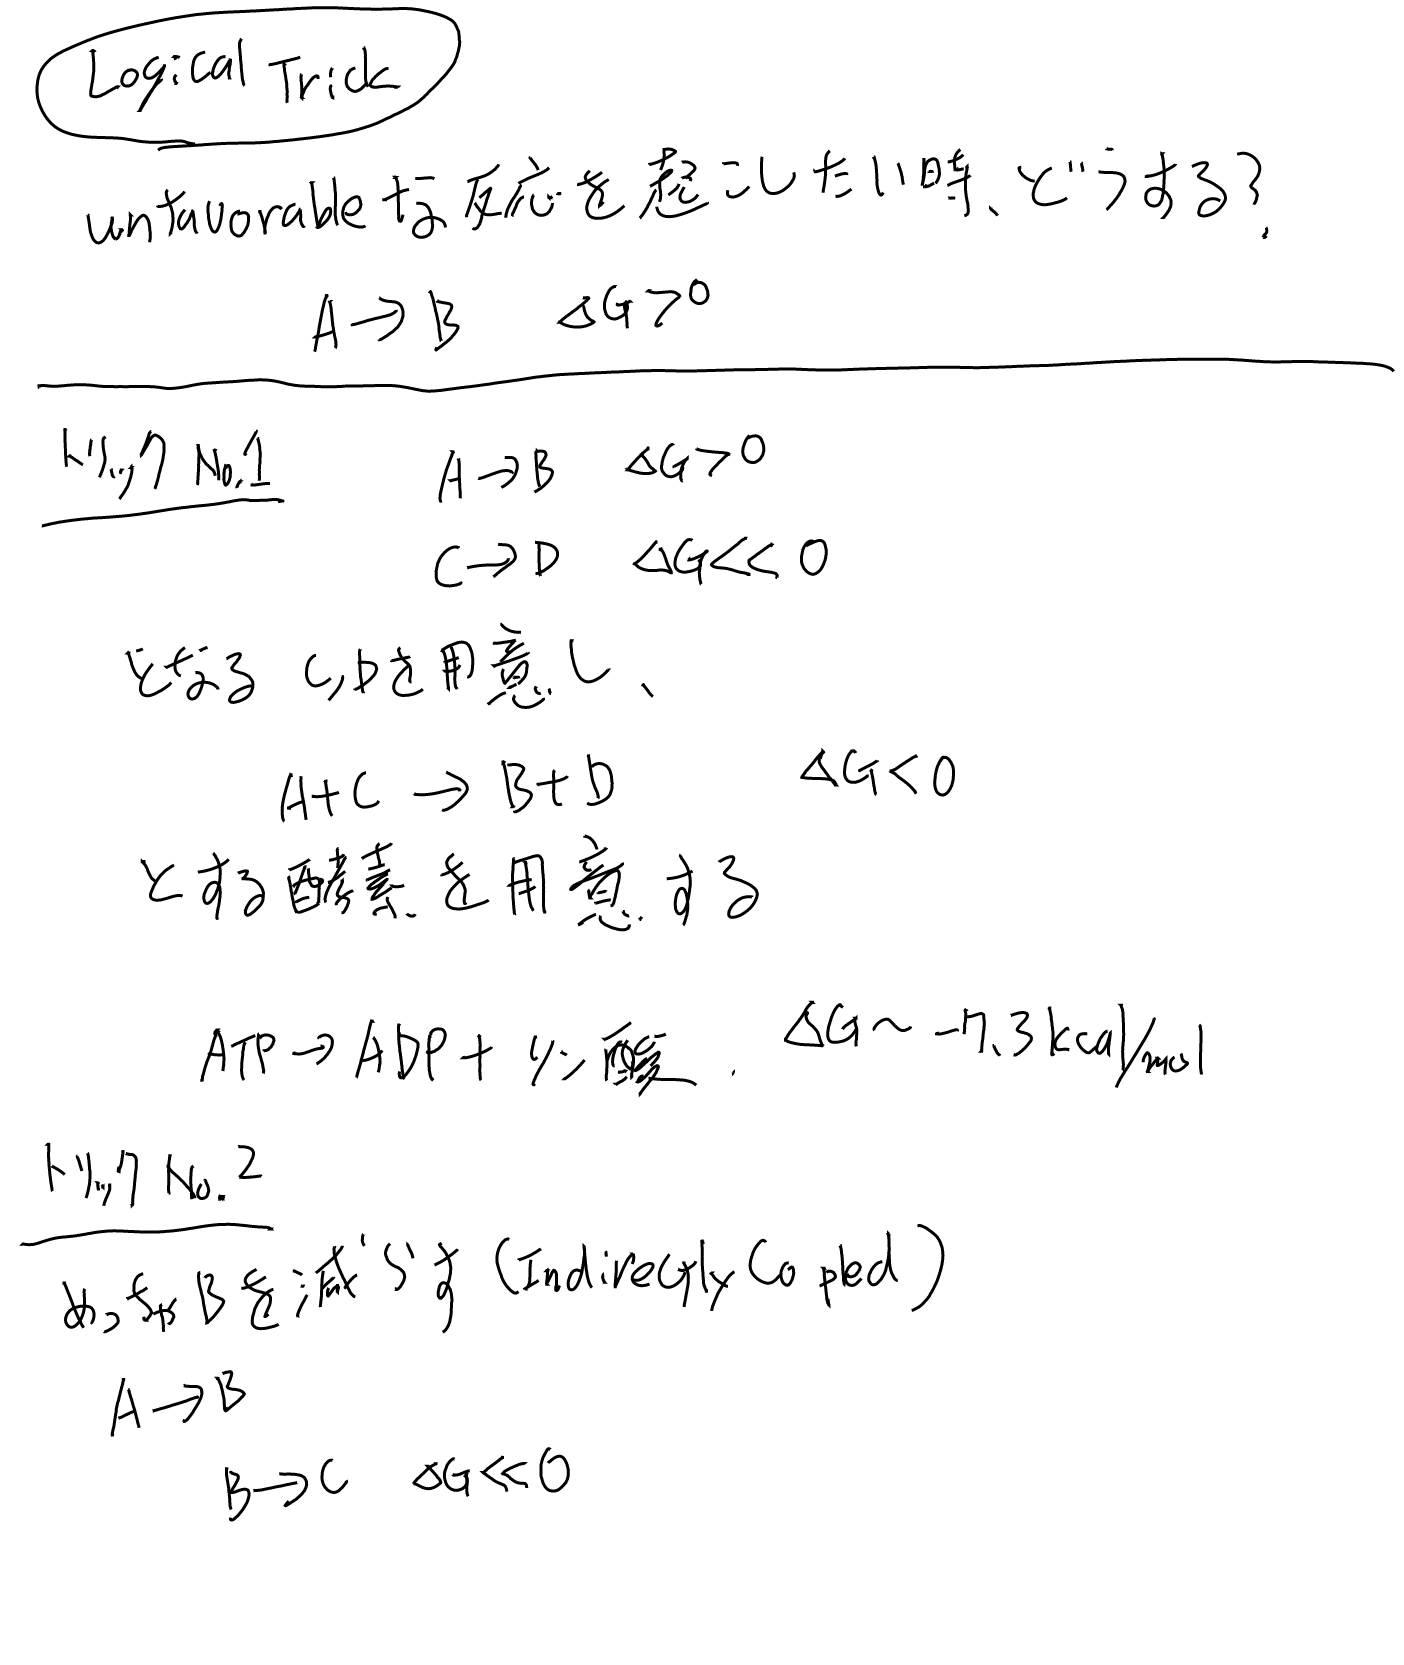 Logical Trick
unfavorableな反応を起こしたい時、どうする?
A→B ΔG>0
トリック No.1
A→B ΔG>0
C→D ΔG<<0
となる C,Dを用意し、
A+C → B+D ΔG<0
とする酵素を用意する
ATP→ADP+リン酸. ΔG～-7.3kcal/mol
トリック No.2
めっちゃBを減らす(Indirectly Copled)
A→B
B→C ΔG<<0